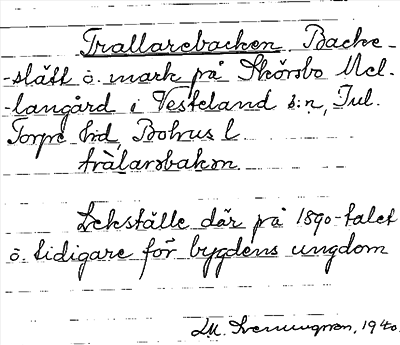 Trallarebacken. Backe-
-slätt o. mark på Skörsbo Mel-
-langård i Vesteland s:n, Tul.
Torpe hd, Bohus l
trálarsbakən
Lekställe där på 1890-talet
o. tidigare för bygdens ungdom
1940.